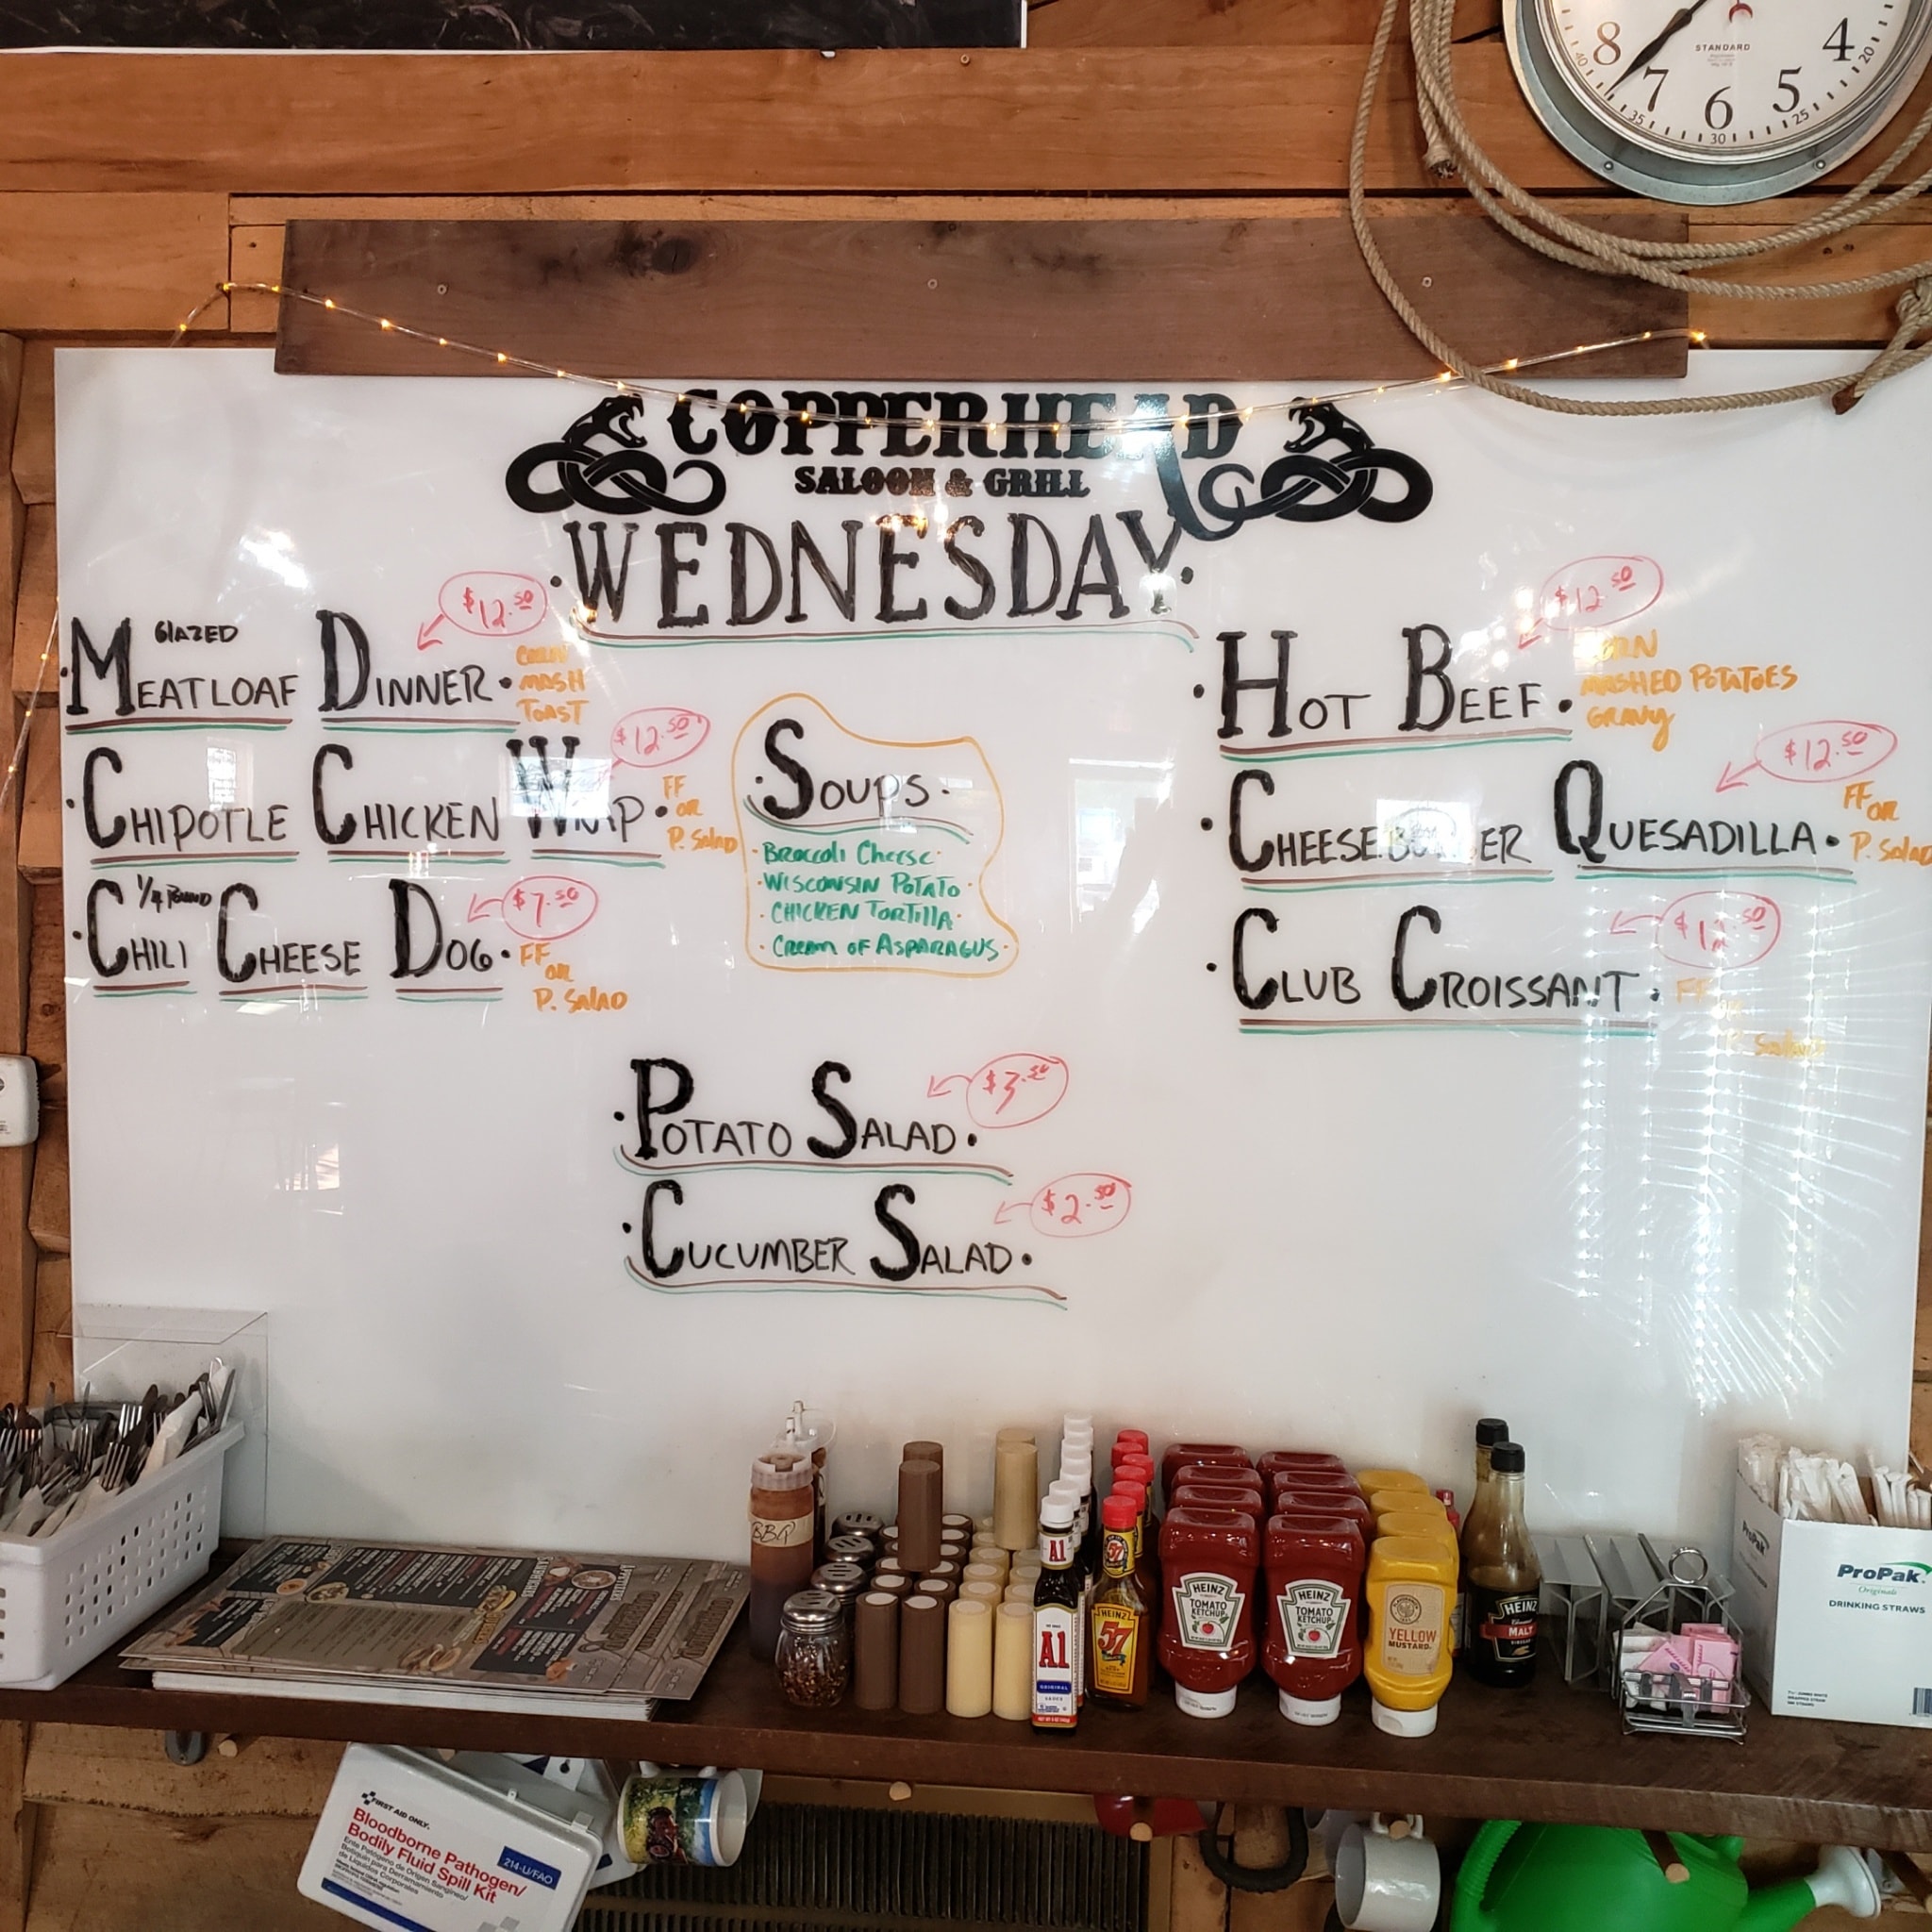 8
7
6
5
4
40
35
30
25
20
STANDARD
COPPERHEAD
SALOON & GRILL
·WEDNESDAY·
GLAZED
·MEATLOAF DINNER·
$12.50
CORN
MASH
TOAST
·CHIPOTLE CHICKEN WRAP·
$12.50
FF
OR
P. SALAD
1/4 POUND
·CHILI CHEESE DOG·
$7.50
FF
OR
P. SALAD
·SOUPS·
·BROCCOLI CHEESE·
·WISCONSIN POTATO·
·CHICKEN TORTILLA·
·CREAM OF ASPARAGUS·
·HOT BEEF·
$12.50
CORN
MASHED POTATOES
GRAVY
·CHEESEBURGER QUESADILLA·
$12.50
FF
OR
P. SALAD
·CLUB CROISSANT·
FF
·POTATO SALAD·
$3.50
·CUCUMBER SALAD·
$2.50
BBQ
A1
A1
ORIGINAL
SAUCE
57
HEINZ
57
HEINZ
TOMATO
KETCHUP
HEINZ
TOMATO
KETCHUP
YELLOW
MUSTARD
HEINZ
MALT
VINEGAR
ProPak
ProPak
Originals
DRINKING STRAWS
FIRST AID ONLY
Bloodborne Pathogen/
Bodily Fluid Spill Kit
214-U/FAO